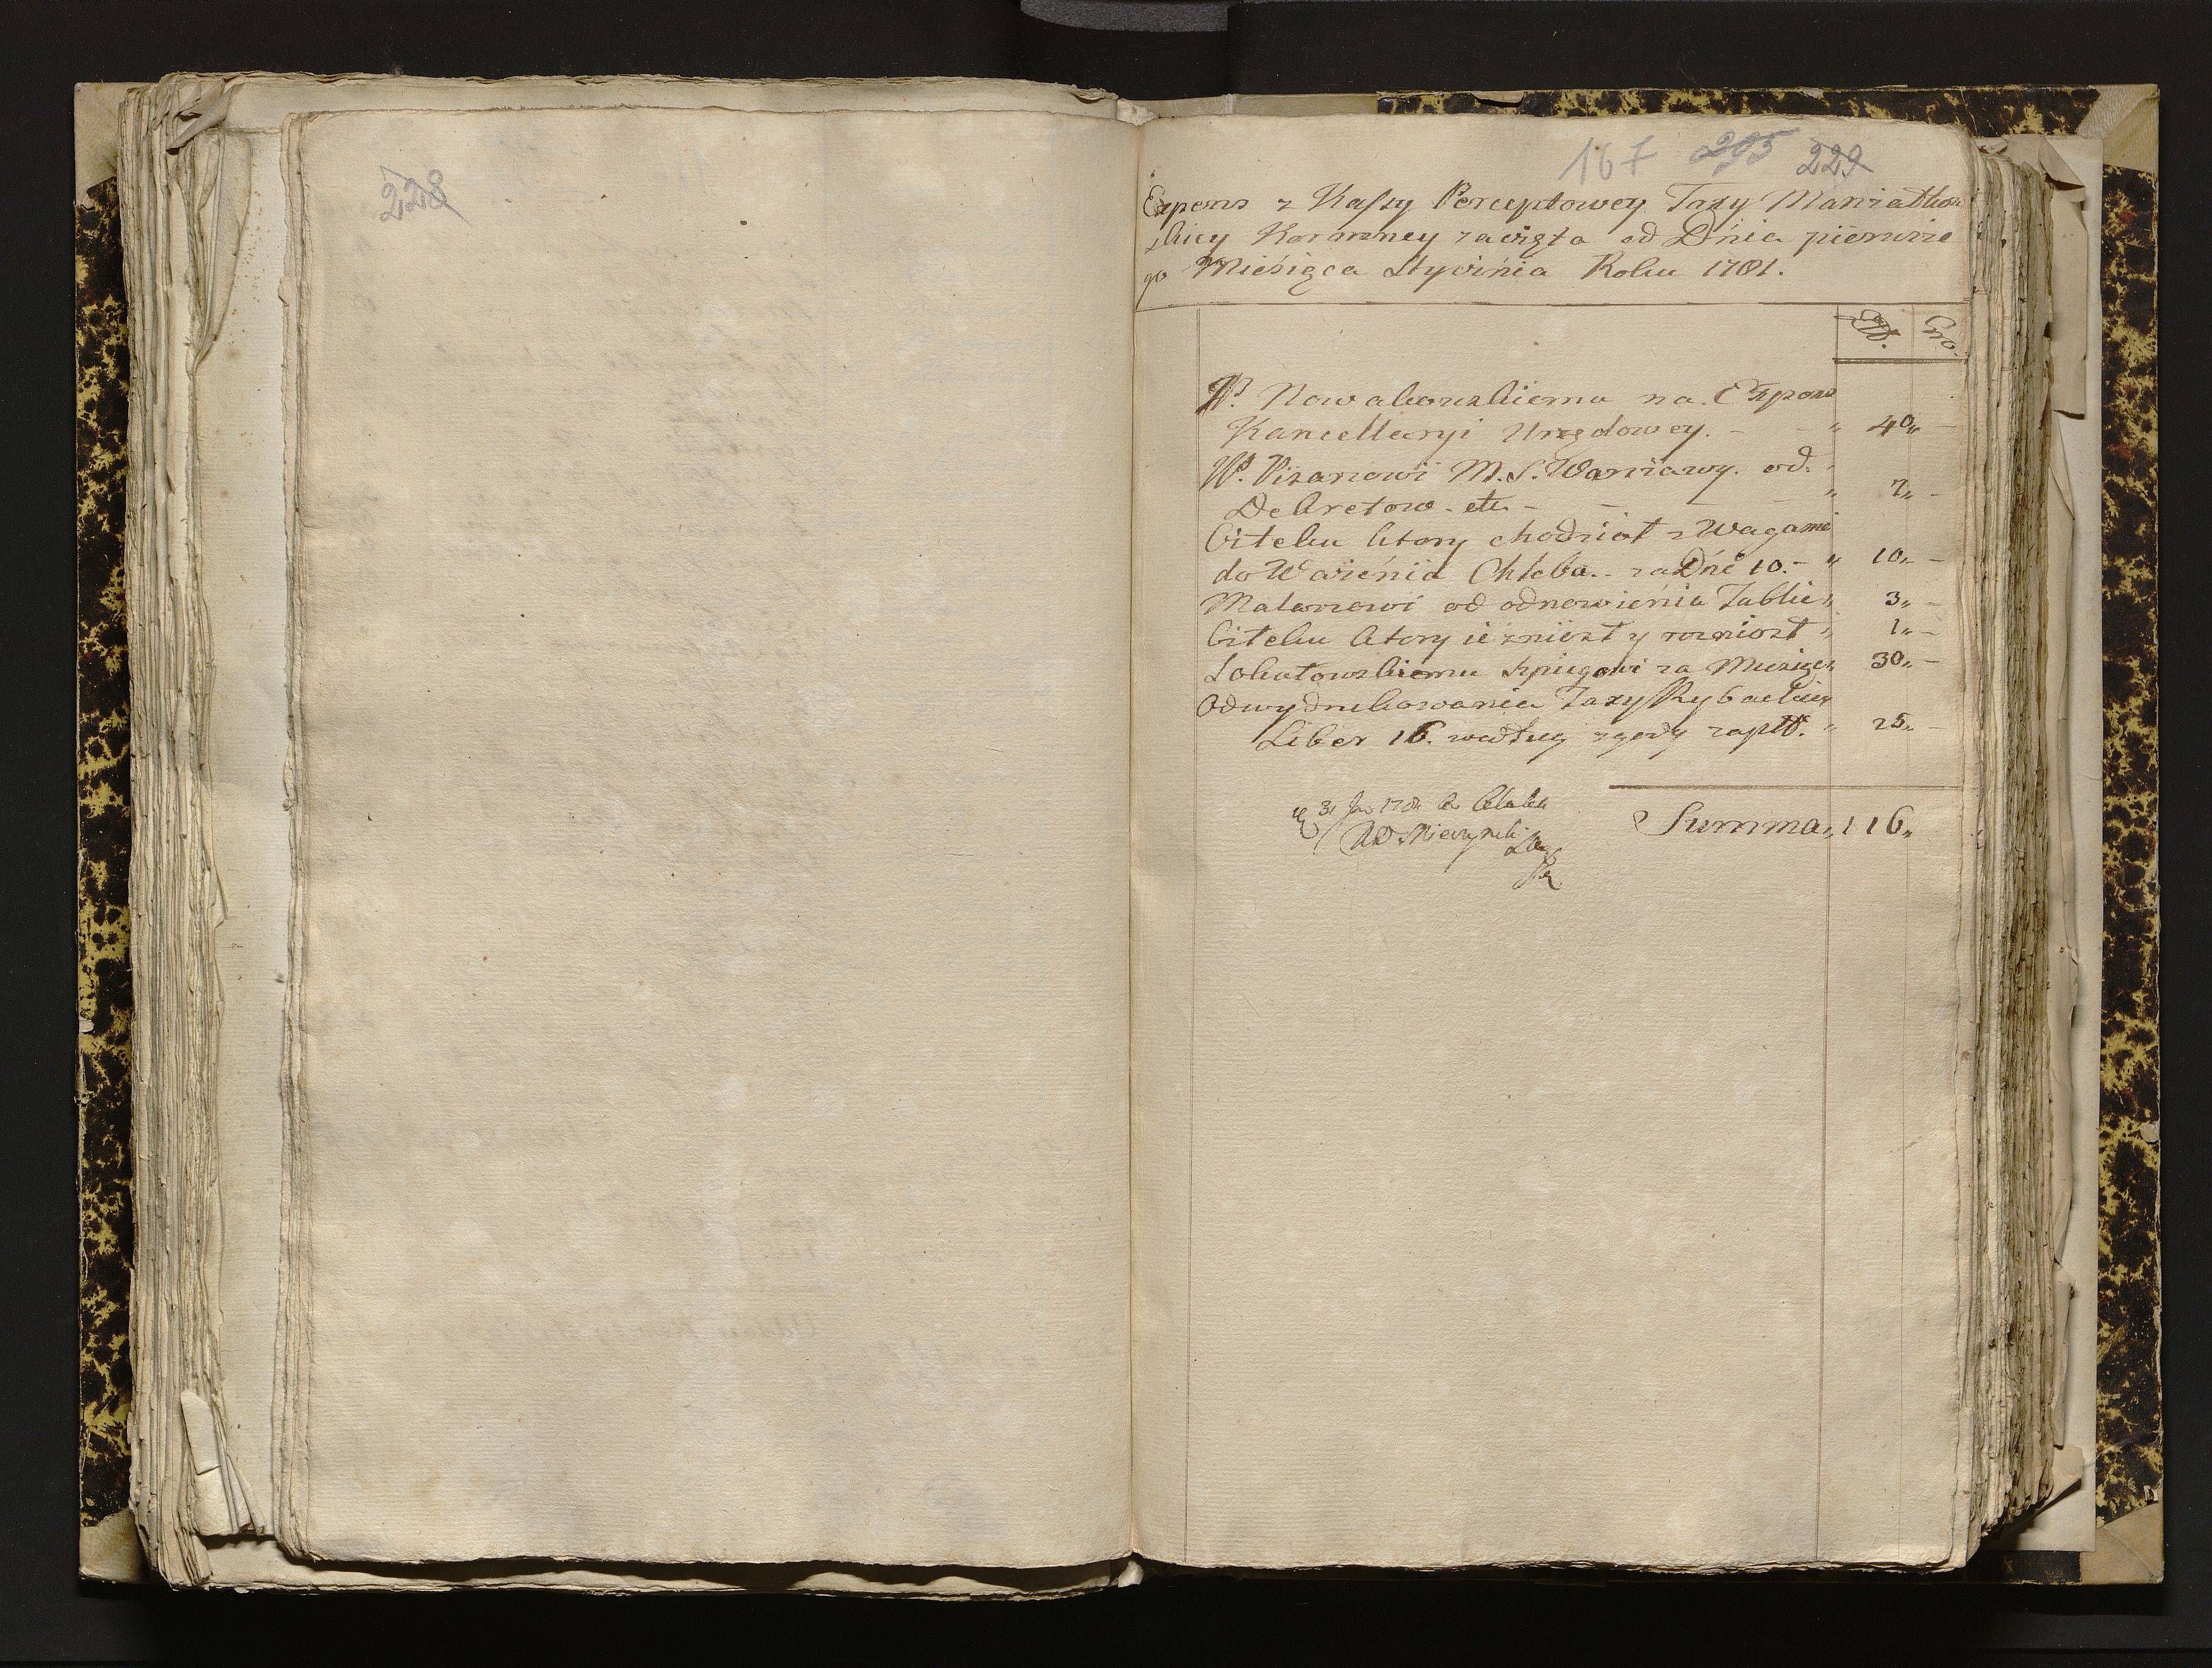 228
167 205 229
Expens z Kassy Perceptowey Taxy Marszałkow
skiey Koronney zaczęta od Dnia pierwsze
go Miesiąca Stycznia Roku 1781.
Złł. Gro.
W. Nowakowskiemu na Expens
Kancellaryi Urzędowey. - - " 40„ -
W. Pisarzowi M. S. Warszawy. od
Dekretow. etc. - - - - " 7„ -
Citeku ktory chodził z Wagami
do Ważenia Chleba. - za Dni 10. - " 10„ -
Malarzowi od odnowienia Tablic „ 3„ -
Citeku ktory ie zniosł y rozniosł „ 1„ -
Lokutowskiemu szpiegowi za Miesiąc „ 30„ -
Od wydrukowania Taxy Rybackiey
Liber 16. według zgody zapłł. „ 25„ -
Summa „ 116„
31 Jan 1781